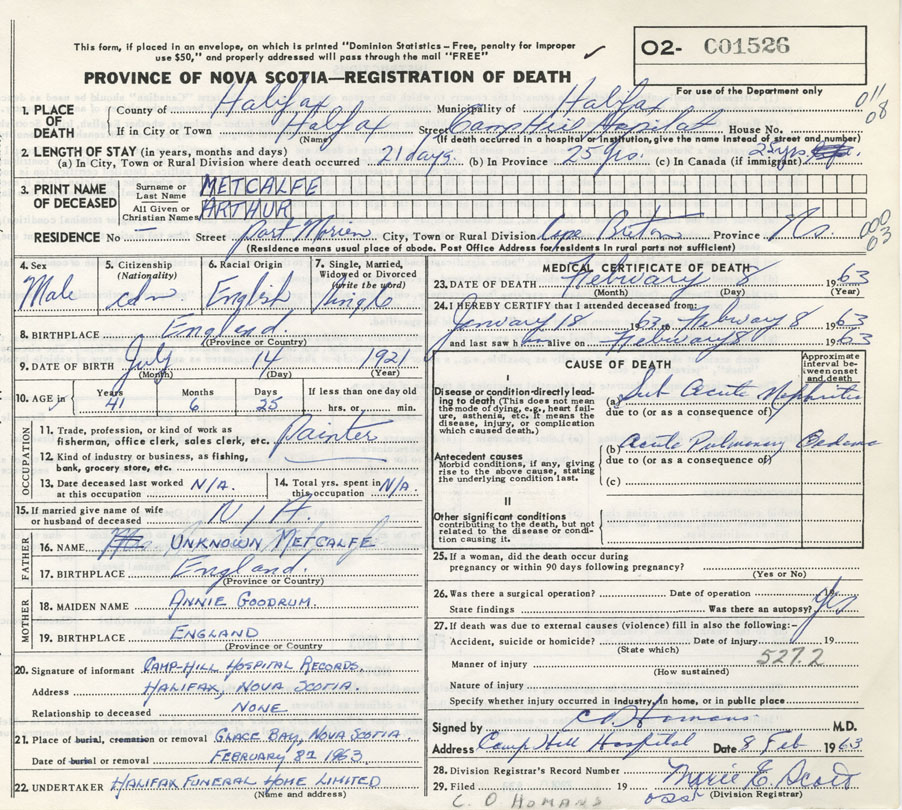 This form, if placed in an envelope, on which is printed "Dominion Statistics – Free, penalty for improper
use $50," and properly addressed will pass through the mail "FREE"
O2- C01526
For use of the Department only
PROVINCE OF NOVA SCOTIA—REGISTRATION OF DEATH
1. PLACE OF DEATH
County of Halifax Municipality of Halifax
If in City or Town Halifax Street Camp Hill Hospital House No.
(Name) (If death occurred in a hospital or institution, give the name instead of street and number)
011
08
2. LENGTH OF STAY (in years, months and days)
(a) In City, Town or Rural Division where death occurred 21 days. (b) In Province 25 yrs. (c) In Canada (if immigrant) 25 yrs.
3. PRINT NAME OF DECEASED
Surname or Last Name METCALFE
All Given or Christian Names ARTHUR
RESIDENCE No — Street Port Morien City, Town or Rural Division Cape Breton Province N.S.
(Residence means usual place of abode. Post Office Address for residents in rural parts not sufficient)
000
03
4. Sex Male
5. Citizenship (Nationality) cdn
6. Racial Origin English
7. Single, Married, Widowed or Divorced (write the word) Single
8. BIRTHPLACE England.
(Province or Country)
9. DATE OF BIRTH July 14 1921
(Month) (Day) (Year)
10. AGE in Years 41 Months 6 Days 25 If less than one day old hrs. or min.
OCCUPATION
11. Trade, profession or kind of work as fisherman, office clerk, sales clerk, etc. Painter
12. Kind of industry or business, as fishing, bank, grocery store, etc.
13. Date deceased last worked at this occupation N/A.
14. Total yrs. spent in this occupation N/A.
15. If married give name of wife or husband of deceased N/A
FATHER
16. NAME UNKNOWN METCALFE
17. BIRTHPLACE England.
(Province or Country)
MOTHER
18. MAIDEN NAME ANNIE GOODRUM.
19. BIRTHPLACE ENGLAND
(Province or Country)
20. Signature of informant CAMP-HILL HOSPITAL RECORDS.
Address HALIFAX, NOVA SCOTIA.
Relationship to deceased NONE
21. Place of burial, cremation or removal GLACE BAY, NOVA SCOTIA
Date of burial or removal FEBRUARY 8TH 1963
22. UNDERTAKER HALIFAX FUNERAL HOME LIMITED
(Name and address)
MEDICAL CERTIFICATE OF DEATH
23. DATE OF DEATH February 8 1963
(Month) (Day) (Year)
24. I HEREBY CERTIFY that I attended deceased from:
January 18 1963 to February 8 1963
and last saw him alive on February 8 1963
CAUSE OF DEATH
Approximate interval between onset and death
I
Disease or condition directly leading to death (This does not mean the mode of dying, e.g., heart failure, asthenia, etc. It means the disease, injury, or complication which caused death.)
(a) Sub Acute Nephritis
due to (or as a consequence of)
Antecedent causes
Morbid conditions, if any, giving rise to the above cause, stating the underlying condition last.
(b) Acute Pulmonary Oedema
due to (or as a consequence of)
(c)
II
Other significant conditions
contributing to the death, but not related to the disease or condition causing it.
25. If a woman, did the death occur during
pregnancy or within 90 days following pregnancy?
(Yes or No)
26. Was there a surgical operation? Date of operation 19
State findings Was there an autopsy? Yes
27. If death was due to external causes (violence) fill in also the following:–
Accident, suicide or homicide? Date of injury 19
(State which)
527.2
Manner of injury
(How sustained)
Nature of injury
Specify whether injury occurred in industry, in home, or in public place
Signed by C O Homans M.D.
Address Camp Hill Hospital Date 8 Feb 1963
28. Division Registrar's Record Number
29. Filed 19 Marie E. Scott
(Division Registrar)
C. O HOMANS